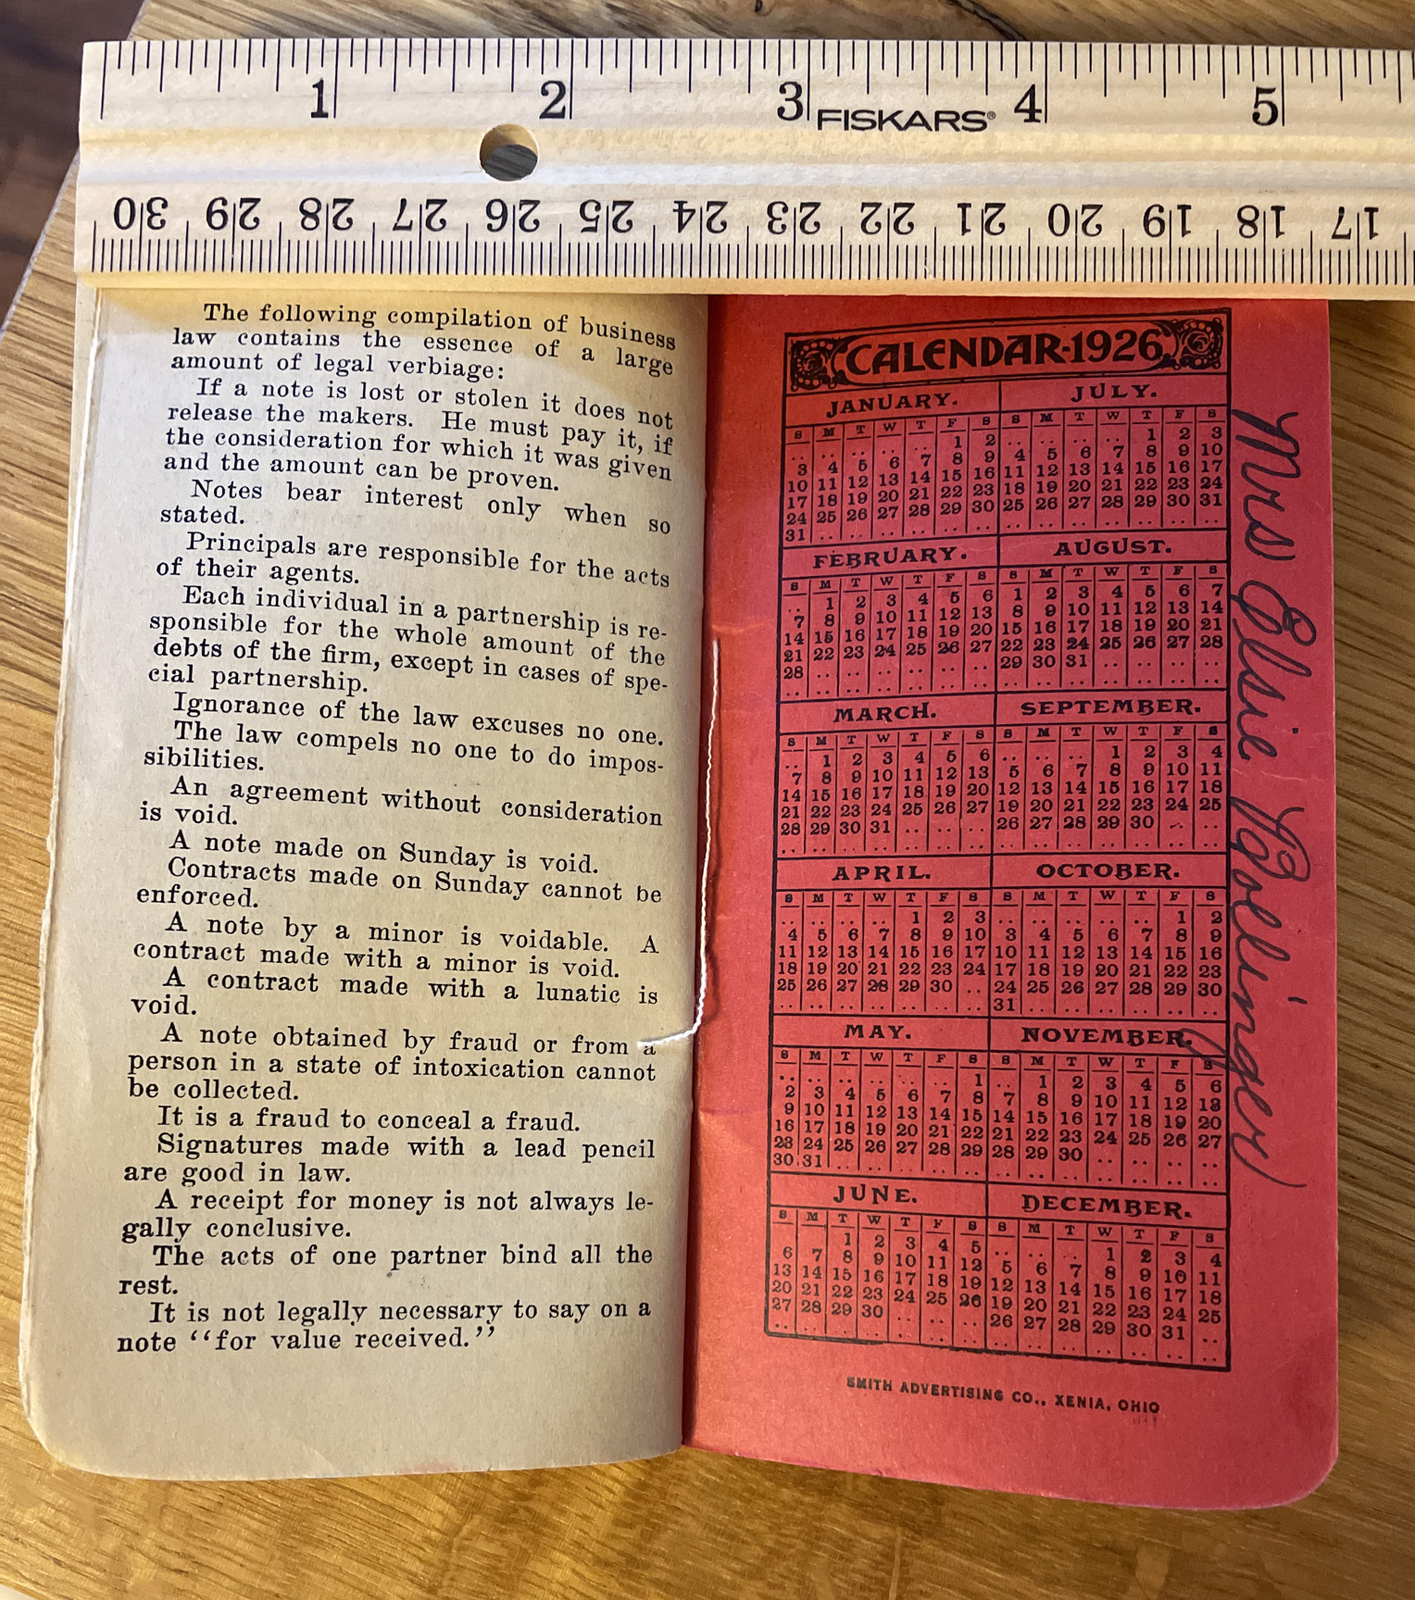 1 2 3 FISKARS® 4 5
30 29 28 27 26 25 24 23 22 21 20 19 18 17
The following compilation of business
law contains the essence of a large
amount of legal verbiage:
If a note is lost or stolen it does not
release the makers. He must pay it, if
the consideration for which it was given
and the amount can be proven.
Notes bear interest only when so
stated.
Principals are responsible for the acts
of their agents.
Each individual in a partnership is re-
sponsible for the whole amount of the
debts of the firm, except in cases of spe-
cial partnership.
Ignorance of the law excuses no one.
The law compels no one to do impos-
sibilities.
An agreement without consideration
is void.
A note made on Sunday is void.
Contracts made on Sunday cannot be
enforced.
A note by a minor is voidable. A
contract made with a minor is void.
A contract made with a lunatic is
void.
A note obtained by fraud or from a
person in a state of intoxication cannot
be collected.
It is a fraud to conceal a fraud.
Signatures made with a lead pencil
are good in law.
A receipt for money is not always le-
gally conclusive.
The acts of one partner bind all the
rest.
It is not legally necessary to say on a
note "for value received."
CALENDAR-1926
JANUARY.
S M T W T F S
1 2
3 4 5 6 7 8 9
10 11 12 13 14 15 16
17 18 19 20 21 22 23
24 25 26 27 28 29 30
31
FEBRUARY.
S M T W T F S
1 2 3 4 5 6
7 8 9 10 11 12 13
14 15 16 17 18 19 20
21 22 23 24 25 26 27
28
MARCH.
S M T W T F S
1 2 3 4 5 6
7 8 9 10 11 12 13
14 15 16 17 18 19 20
21 22 23 24 25 26 27
28 29 30 31
APRIL.
S M T W T F S
1 2 3
4 5 6 7 8 9 10
11 12 13 14 15 16 17
18 19 20 21 22 23 24
25 26 27 28 29 30
MAY.
S M T W T F S
1
2 3 4 5 6 7 8
9 10 11 12 13 14 15
16 17 18 19 20 21 22
23 24 25 26 27 28 29
30 31
JUNE.
S M T W T F S
1 2 3 4 5
6 7 8 9 10 11 12
13 14 15 16 17 18 19
20 21 22 23 24 25 26
27 28 29 30
JULY.
S M T W T F S
1 2 3
4 5 6 7 8 9 10
11 12 13 14 15 16 17
18 19 20 21 22 23 24
25 26 27 28 29 30 31
AUGUST.
S M T W T F S
1 2 3 4 5 6 7
8 9 10 11 12 13 14
15 16 17 18 19 20 21
22 23 24 25 26 27 28
29 30 31
SEPTEMBER.
S M T W T F S
1 2 3 4
5 6 7 8 9 10 11
12 13 14 15 16 17 18
19 20 21 22 23 24 25
26 27 28 29 30
OCTOBER.
S M T W T F S
1 2
3 4 5 6 7 8 9
10 11 12 13 14 15 16
17 18 19 20 21 22 23
24 25 26 27 28 29 30
31
NOVEMBER.
S M T W T F S
1 2 3 4 5 6
7 8 9 10 11 12 13
14 15 16 17 18 19 20
21 22 23 24 25 26 27
28 29 30
DECEMBER.
S M T W T F S
1 2 3 4
5 6 7 8 9 10 11
12 13 14 15 16 17 18
19 20 21 22 23 24 25
26 27 28 29 30 31
SMITH ADVERTISING CO., XENIA, OHIO
Mrs Elsie Bollinger